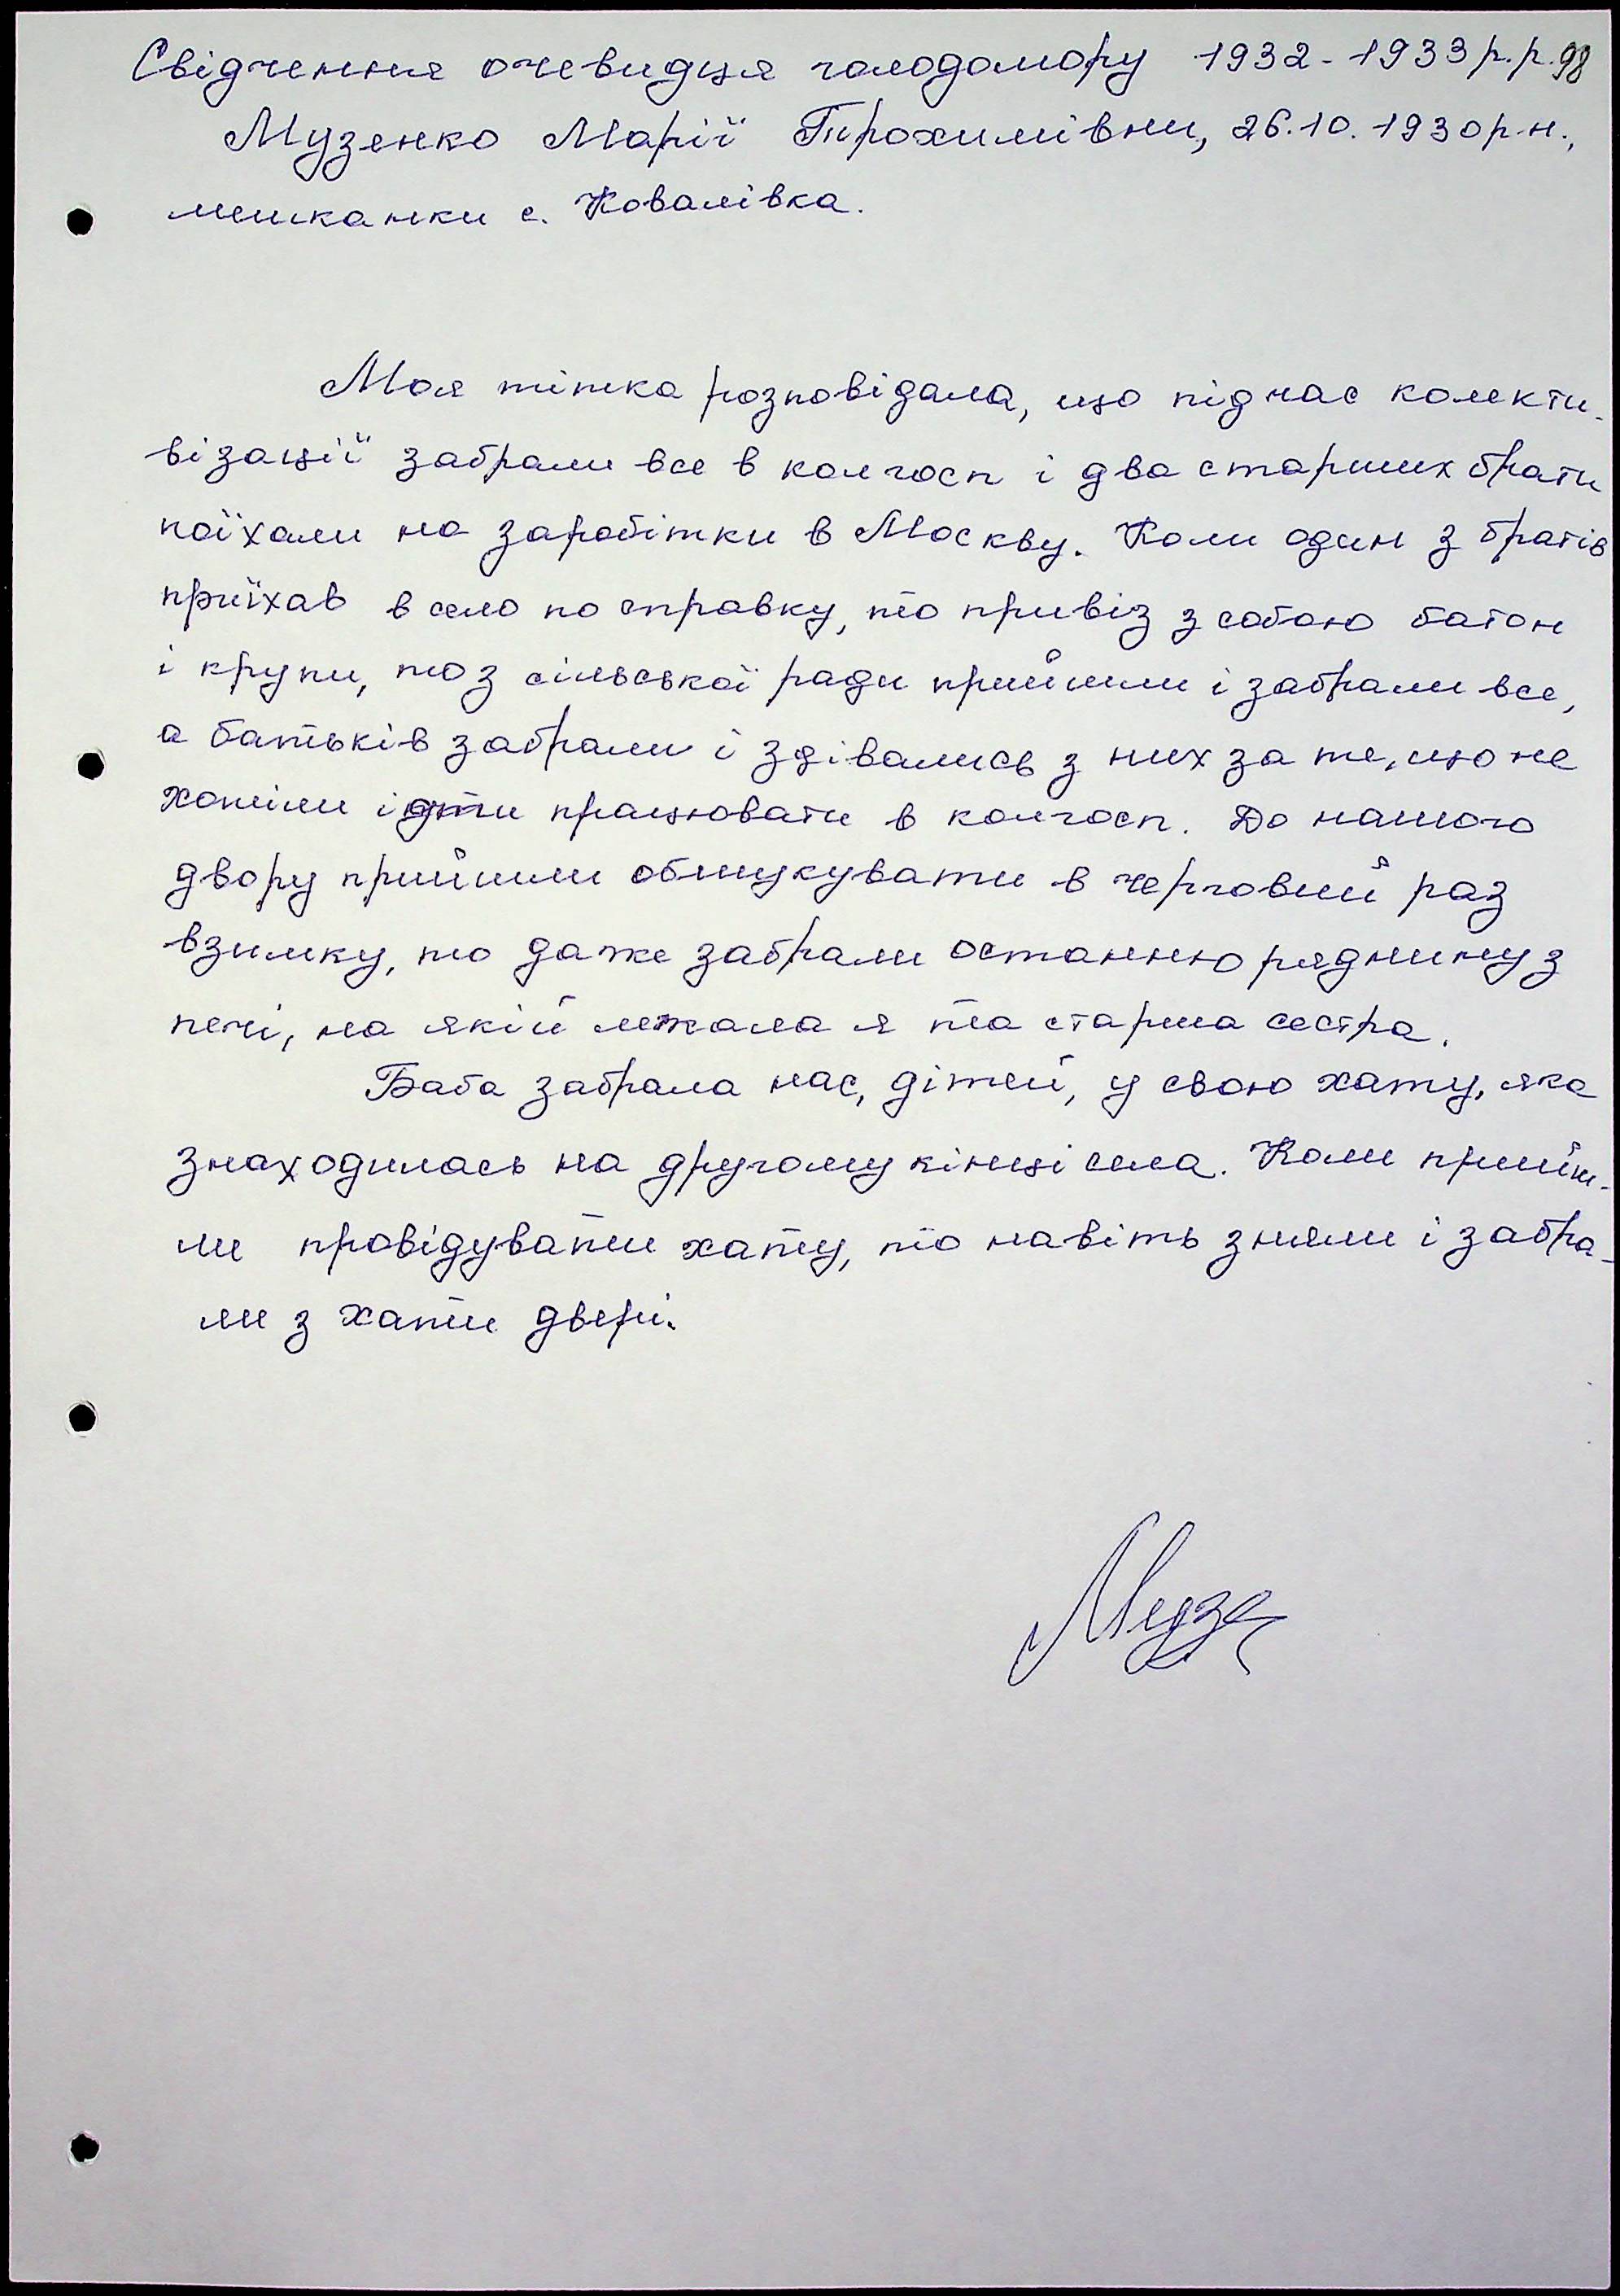 Свідчення очевидця голодомору 1932-1933 р.р. 98
Музенко Марії Трохимівни, 26.10.1930 р.н.,
мешканки с. Ковалівка.
Моя тітка розповідала, що під час колекти-
візації забрали все в колгосп і два старших брати
поїхали на заробітки в Москву. Коли один з братів
приїхав в село по справку, то привіз з собою батон
і крупи, то з сільської ради прийшли і забрали все,
а батьків забрали і здівались з них за те, що не
хотіли ідти працювати в колгосп. До нашого
двору прийшли обшукувати в черговий раз
взимку, то даже забрали останню ряднину з
печі, на якій лежала я та старша сестра.
Баба забрала нас, дітей, у свою хату, яка
знаходилась на другому кінці села. Коли прийш-
ли провідувати хату, то навіть зняли і забра-
ли з хати двері.
Музе